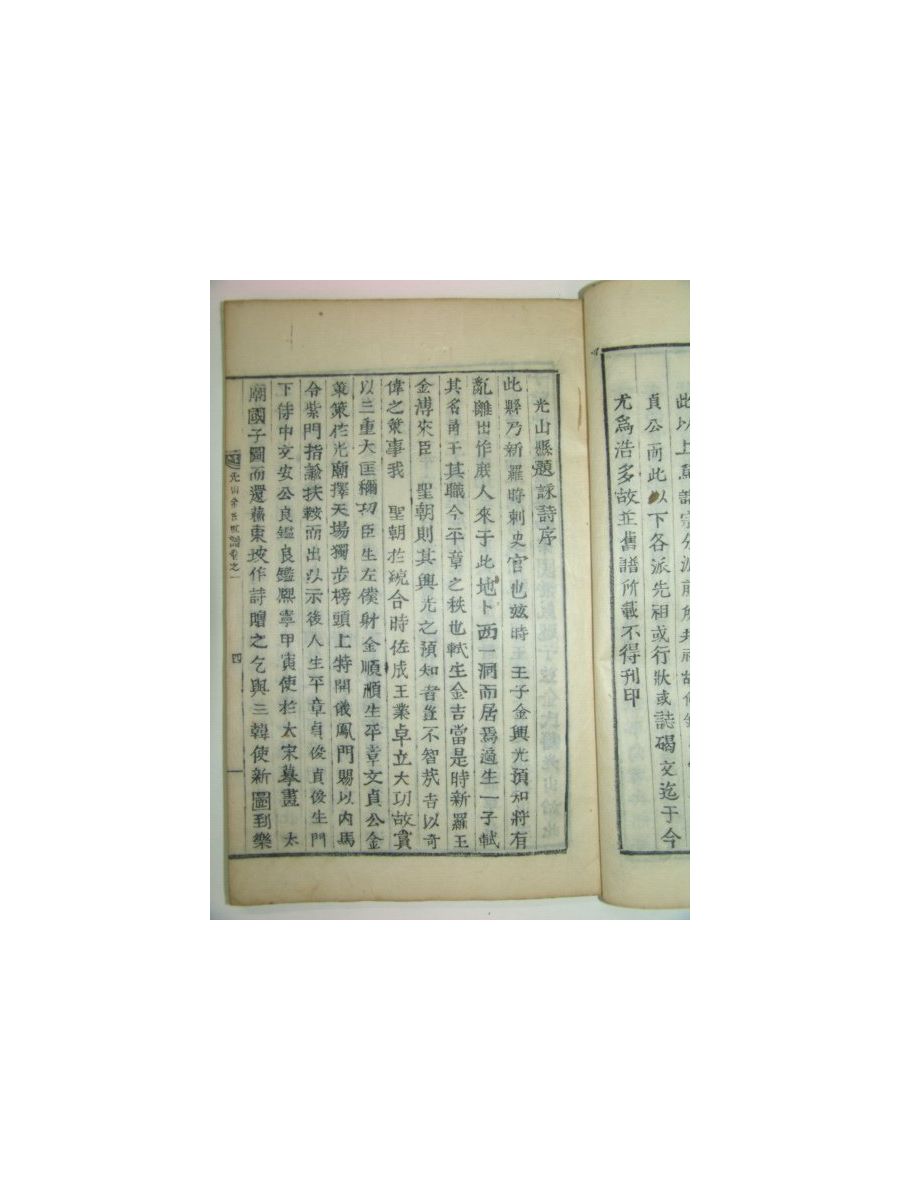 此以上爲譜宗分派前所共祖故
貞公而此以下各派先祖或行狀或誌碣文迄于今
尤爲浩多故並舊譜所載不得刊印
光山縣題詠詩序
此縣乃新羅時刺史官也玆時王王子金興光預知將有
亂離出作庶人來于此地卜西一洞而居焉適生一子軾
其名角干其職今平章之秩也軾生金吉當是時新羅王
金溥來臣 聖朝則其興光之預知者豈不智哉吉以奇
偉之業事我 聖朝於統合時佐成王業卓立大功故賞
以三重大匡穪功臣生左僕射金順順生平章文貞公金
策策於光廟擇天場獨步榜頭上特開儀鳳門賜以內馬
令紫門指諭扶鞍而出以示後人生平章貞俊貞俊生門
下侍中文安公良鑑良鑑熙寧甲寅使於太宋摹畫 太
廟國子圖而還蘇東坡作詩贈之乞與三韓使新圖到樂
光山金氏世譜卷之一 四